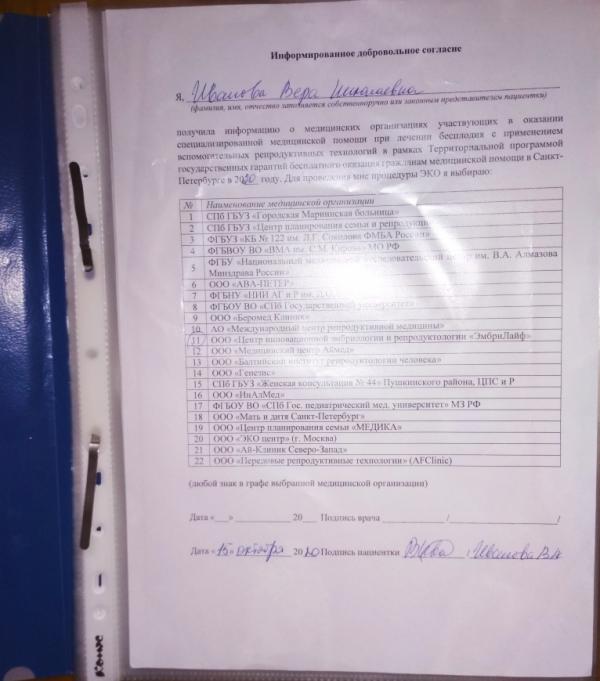 Информированное добровольное согласие
Я, Иванова Вера Николаевна
(фамилия, имя, отчество заполняется собственноручно или законным представителем пациентки)
получила информацию о медицинских организациях участвующих в оказании
специализированной медицинской помощи при лечении бесплодия с применением
вспомогательных репродуктивных технологий в рамках Территориальной программой
государственных гарантий бесплатного оказания гражданам медицинской помощи в Санкт-
Петербурге в 2020 году. Для проведения мне процедуры ЭКО я выбираю:
№ Наименование медицинской организации
1 СПб ГБУЗ «Городская Мариинская больница»
2 СПб ГБУЗ «Центр планирования семьи и репродукции»
3 ФГБУЗ «КБ № 122 им. Л.Г. Соколова ФМБА России»
4 ФГБВОУ ВО «ВМА им. С.М. Кирова» МО РФ
5 ФГБУ «Национальный медицинский исследовательский центр им. В.А. Алмазова
Минздрава России»
6 ООО «АВА-ПЕТЕР»
7 ФГБНУ «НИИ АГ и Р им. Д.О.
8 ФГБОУ ВО «СПб Государственный университет»
9 ООО «Беромед Клиник»
10 АО «Международный центр репродуктивной медицины»
11 ООО «Центр инновационной эмбриологии и репродуктологии «ЭмбриЛайф»
12 ООО «Медицинский центр Аймед»
13 ООО «Балтийский институт репродуктологии человека»
14 ООО «Генезис»
15 СПб ГБУЗ «Женская консультация № 44» Пушкинского района, ЦПС и Р
16 ООО «ИнАлМед»
17 ФГБОУ ВО «СПб Гос. педиатрический мед. университет» МЗ РФ
18 ООО «Мать и дитя Санкт-Петербург»
19 ООО «Центр планирования семьи «МЕДИКА»
20 ООО «ЭКО центр» (г. Москва)
21 ООО «Ай-Клиник Северо-Запад»
22 ООО «Передовые репродуктивные технологии» (AFClinic)
(любой знак в графе выбранной медицинской организации)
Дата «___» ____________ 20___ Подпись врача ______________/________________________/
Дата «15» октября 2020 Подпись пациентки / Иванова В.Н